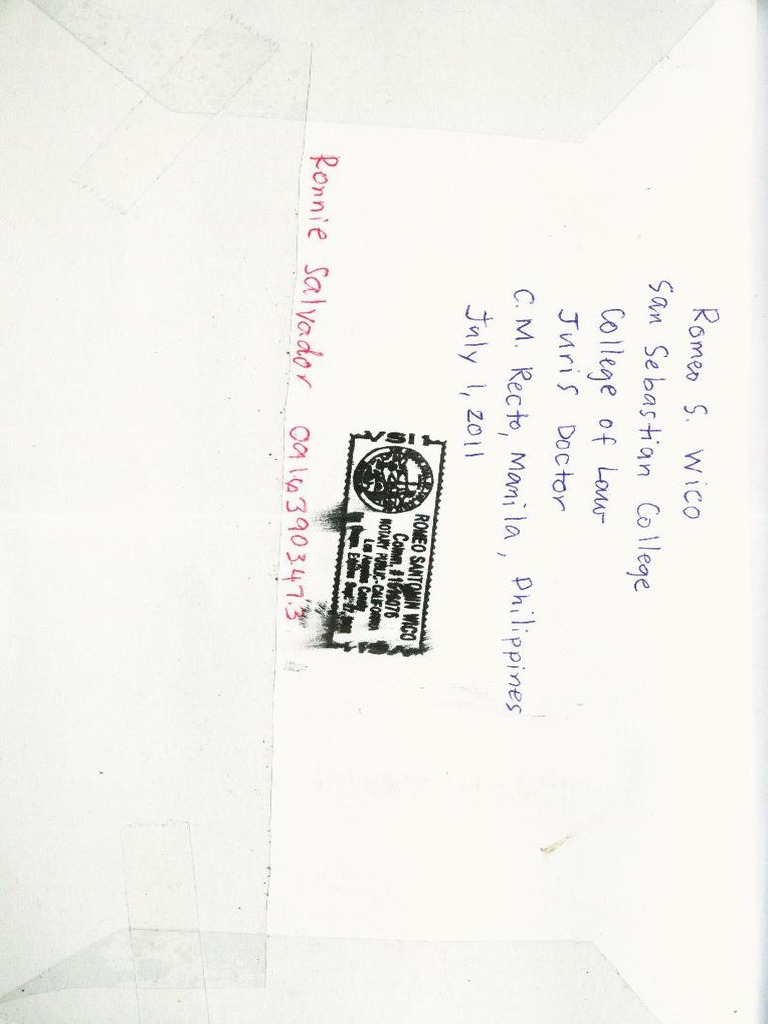 Romeo S. Wico
San Sebastian College
College of Law
Juris Doctor
C.M. Recto, Manila, Philippines
July 1, 2011
ROMEO SANTOMIN WICO
Comm. #
NOTARY PUBLIC-CALIFORNIA
Los Angeles County
Ronnie Salvador 09163903473